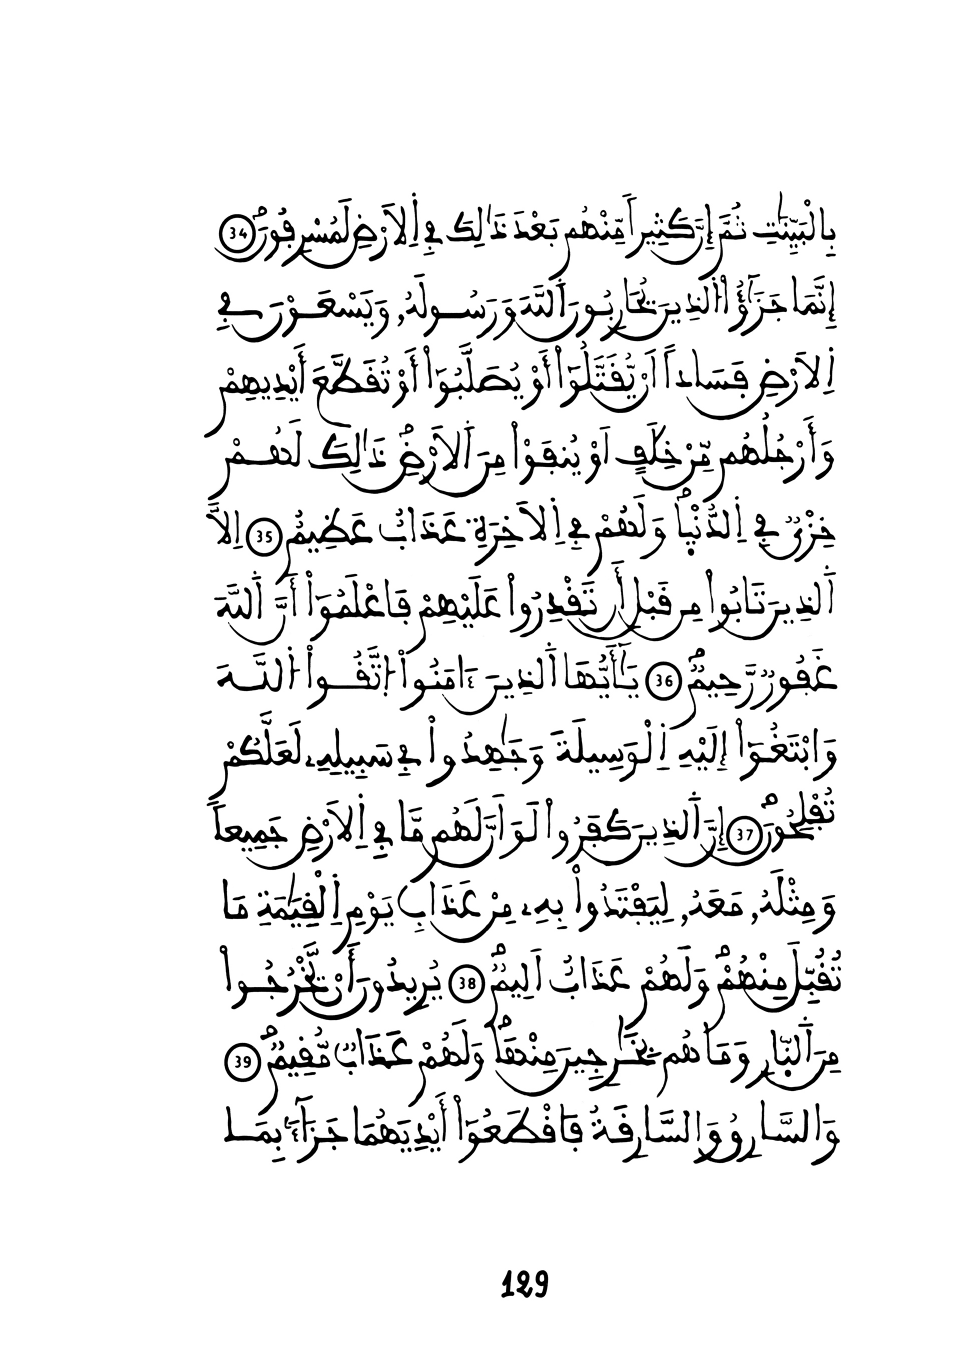 بِالْبَيِّنَٰتِ ثُمَّ إِنَّ كَثِيراً مِّنْهُم بَعْدَ ذَٰلِكَ فِے اِ۬لَارْضِ لَمُسْرِفُونَۖ 34
إِنَّمَا جَزَٰٓؤُاْ اُ۬لذِينَ يُحَارِبُونَ اَ۬للَّهَ وَرَسُولَهُۥ وَيَسْعَوْنَ فِے
اِ۬لَارْضِ فَسَاداً اَنْ يُّقَتَّلُوٓاْ أَوْ يُصَلَّبُوٓاْ أَوْ تُقَطَّعَ أَيْدِيهِمْ
وَأَرْجُلُهُم مِّنْ خِلَٰفٍ اَوْ يُنفَوْاْ مِنَ اَ۬لَارْضِۖ ذَٰلِكَ لَهُمْ
خِزْيٞ فِے اِ۬لدُّنْي۪اۖ وَلَهُمْ فِے اِ۬لَاخِرَةِ عَذَابٌ عَظِيمٌ 35 اِلَّا
اَ۬لذِينَ تَابُواْ مِن قَبْلِ أَن تَقْدِرُواْ عَلَيْهِمْ فَاعْلَمُوٓاْ أَنَّ اَ۬للَّهَ
غَفُورٞ رَّحِيمٞۖ 36 يَٰٓأَيُّهَا اَ۬لذِينَ ءَامَنُواْ اُ۪تَّقُواْ اُ۬للَّهَ
وَابْتَغُوٓاْ إِلَيْهِ اِ۬لْوَسِيلَةَ وَجَٰهِدُواْ فِے سَبِيلِهِۦ لَعَلَّكُمْ
تُفْلِحُونَۖ 37 إِنَّ اَ۬لذِينَ كَفَرُواْ لَوَ اَنَّ لَهُم مَّا فِے اِ۬لَارْضِ جَمِيعاً
وَمِثْلَهُۥ مَعَهُۥ لِيَفْتَدُواْ بِهِۦ مِنْ عَذَابِ يَوْمِ اِ۬لْقِيَٰمَةِ مَا
تُقُبِّلَ مِنْهُمْۖ وَلَهُمْ عَذَابٌ اَلِيمٞۖ 38 يُرِيدُونَ أَنْ يَّخْرُجُواْ
مِنَ اَ۬لنّ۪ارِ وَمَا هُم بِخَٰرِجِينَ مِنْهَاۖ وَلَهُمْ عَذَابٞ مُّقِيمٞۖ 39
وَالسَّارِقُ وَالسَّارِقَةُ فَاقْطَعُوٓاْ أَيْدِيَهُمَا جَزَآءَۢ بِمَا
129